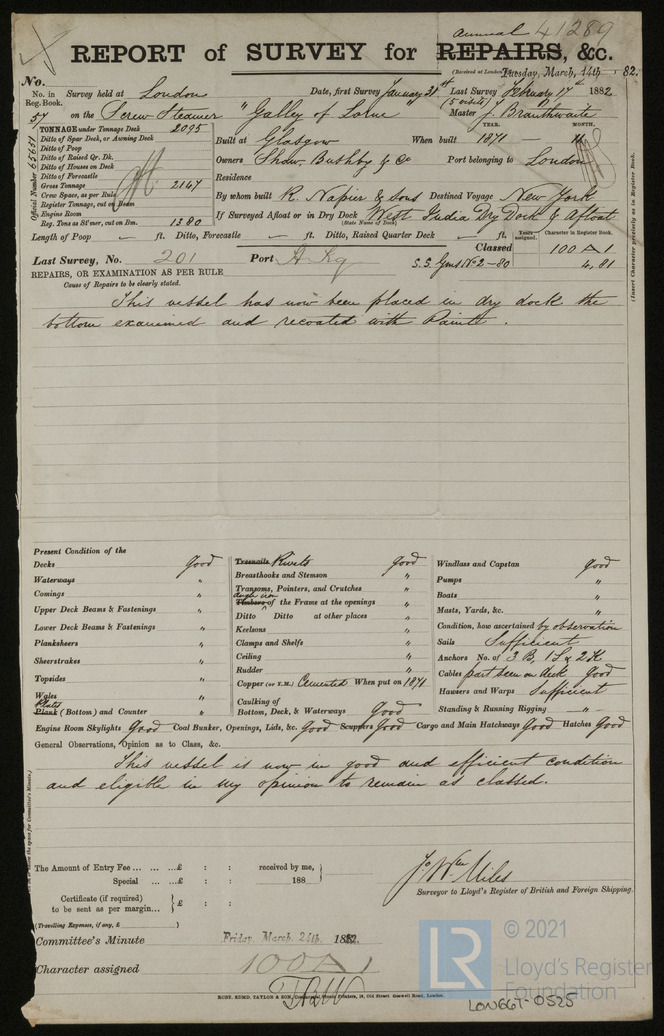 Annual 41289
REPORT of SURVEY for REPAIRS, &c.
(Received at London Tuesday, March, 14th 82.
No.
No. in Reg. Book. Survey held at London Date, first Survey January 31st Last Survey February 17th 1882
(5 visits)
57 on the Screw Steamer "Galley of Lorne" Master J. Braithwaite
TONNAGE under Tonnage Deck 2095
Ditto of Spar Deck, or Awning Deck
Ditto of Poop
Ditto of Raised Qr. Dk.
Ditto of Houses on Deck
Ditto of Forecastle
Gross Tonnage 2167
Crew Space, as per Rule
Register Tonnage, cut on Beam
Engine Room
Reg. Tons as St'mer, cut on Bm. 1380
Official Number 65651
YEAR. MONTH.
Built at Glasgow When built 1871 — 11
Owners Shaw, Bushby & Co Port belonging to London
Residence
By whom built R. Napier & Sons Destined Voyage New York
If Surveyed Afloat or in Dry Dock West India Dry Dock & Afloat
(State Name of Dock)
Length of Poop — ft. Ditto, Forecastle — ft. Ditto, Raised Quarter Deck — ft.
Years assigned. Character in Register Book.
Classed 100 A 1
Last Survey, No. 201 Port H. Kg S.S. Gms No 2-80 4,81
(Insert Character precisely as in Register Book.)
REPAIRS, OR EXAMINATION AS PER RULE
Cause of Repairs to be clearly stated.
This vessel has now been placed in dry dock the
bottom examined and recoated with Paint.
Present Condition of the
Decks Good
Waterways "
Comings "
Upper Deck Beams & Fastenings "
Lower Deck Beams & Fastenings "
Planksheers "
Sheerstrakes "
Topsides "
Wales "
Plates
Plank (Bottom) and Counter "
Treenails Rivets Good
Breasthooks and Stemson "
Transoms, Pointers, and Crutches "
Timbers of the Frame at the openings "
Ditto Ditto at other places "
Keelsons "
Clamps and Shelfs "
Ceiling "
Rudder "
Copper (or Y.M.) Cemented When put on 1871
Caulking of
Bottom, Deck, & Waterways Good
Windlass and Capstan Good
Pumps "
Boats "
Masts, Yards, &c. "
Condition, how ascertained by observation
Sails Sufficient
Anchors No. of 3 B, 1 S & 2 K
Cables part seen on deck Good
Hawsers and Warps Sufficient
Standing & Running Rigging — " —
Engine Room Skylights Good Coal Bunker, Openings, Lids, &c. Good Scuppers Good Cargo and Main Hatchways Good Hatches Good
General Observations, Opinion as to Class, &c.
This vessel is now in good and efficient condition
and eligible in my opinion to remain as classed.
The Amount of Entry Fee ... ... ...£ : : received by me,
Special ... ...£ : : 188
Certificate (if required)
to be sent as per margin... £ : :
(Travelling Expenses, if any, £ )
Jo Wm Miles
Surveyor to Lloyd's Register of British and Foreign Shipping.
Committee's Minute Friday, March, 24th. 1882.
Character assigned 100 A 1
ROBT. EDMD. TAYLOR & SON, Printers, 19, Old Street, Goswell Road, London.
LR
© 2021
Lloyd's Register
Foundation
LON667-0525